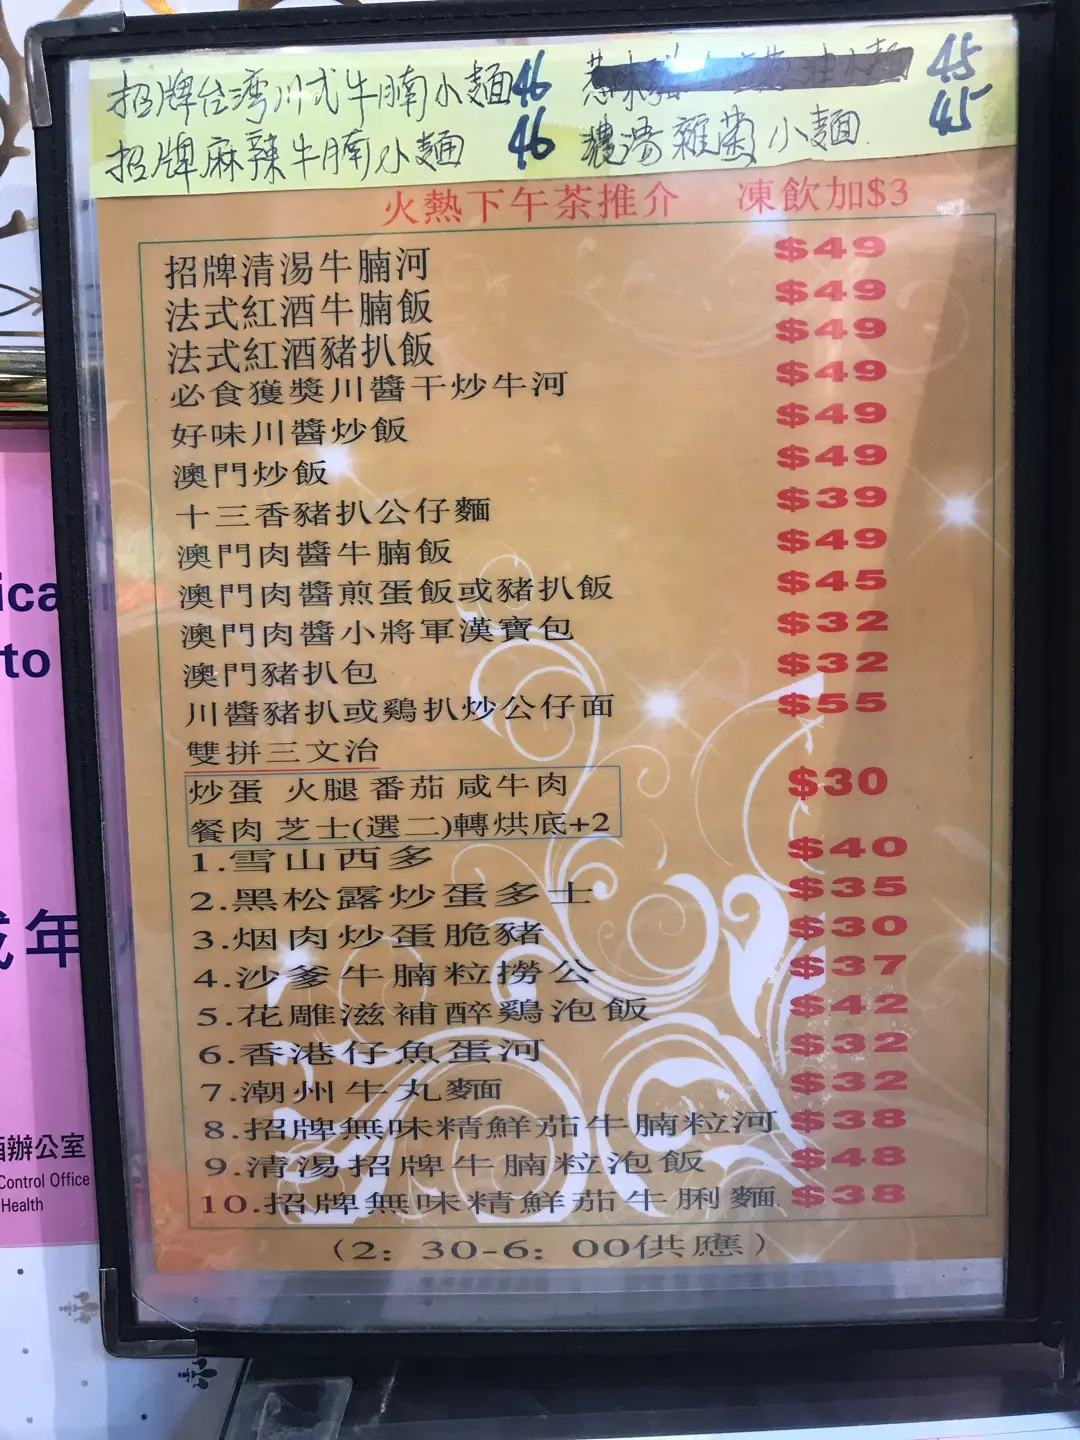 招牌台湾川式牛腩小麵46
45
招牌麻辣牛腩小麵 46
濃湯雜菌小麵 45
火熱下午茶推介 凍飲加$3
招牌清湯牛腩河 $49
法式紅酒牛腩飯 $49
法式紅酒豬扒飯 $49
必食獲獎川醬干炒牛河 $49
好味川醬炒飯 $49
澳門炒飯 $49
十三香豬扒公仔麵 $39
澳門肉醬牛腩飯 $49
澳門肉醬煎蛋飯或豬扒飯 $45
澳門肉醬小將軍漢寶包 $32
澳門豬扒包 $32
川醬豬扒或鷄扒炒公仔面 $55
雙拼三文治
炒蛋 火腿 番茄 咸牛肉 $30
餐肉 芝士(選二)轉烘底+2
1.雪山西多 $40
2.黑松露炒蛋多士 $35
3.烟肉炒蛋脆豬 $30
4.沙爹牛腩粒撈公 $37
5.花雕滋補醉鷄泡飯 $42
6.香港仔魚蛋河 $32
7.潮州牛丸麵 $32
8.招牌無味精鮮茄牛腩粒河 $38
9.清湯招牌牛腩粒泡飯 $48
10.招牌無味精鮮茄牛脷麵 $38
(2：30-6：00供應)
ica
to
年
酒辦公室
Control Office
Health